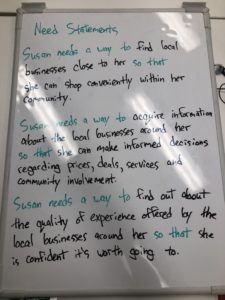 Need Statements
Susan needs a way to find local
businesses close to her so that
she can shop conveniently within her
community.
Susan needs a way to acquire information
about the local businesses around her
so that she can make informed decisions
regarding prices, deals, services, and
community involvement.
Susan needs a way to find out about
the quality of experience offered by the
local businesses around her so that she
is confident it's worth going to.